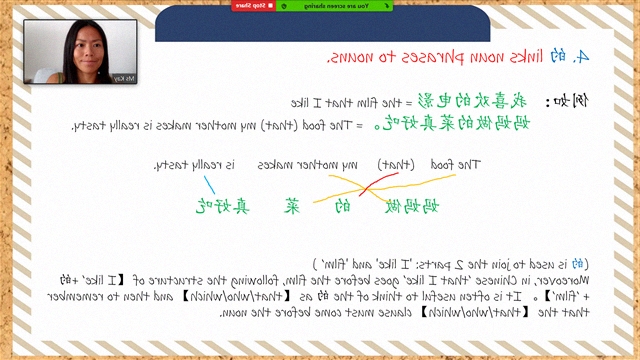 You are screen sharing
Stop Share
Ms Kay
4. 的 links noun phrases to nouns.
例如： 我喜欢的电影 = the film that I like
妈妈做的菜真好吃。 = The food (that) my mother makes is really tasty.
The food (that) my mother makes is really tasty.
妈妈做 的 菜 真好吃
(的 is used to join the 2 parts: 'I like' and 'film' )
Moreover, in Chinese 'that I like' goes before the film, following the structure of 【I like' +的
+ 'film'】。 It is often useful to think of the 的 as 【that/who/which】 and then to remember
that the 【that/who/which】 clause must come before the noun.